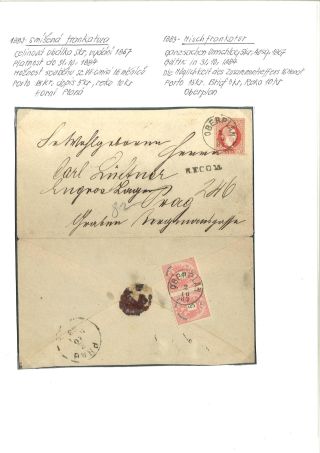 1883 smíšená frankatura
celinová obálka 5kr vydání 1867
Platnost do 31.10. 1884
Možnost souběhu se 16 měsíců
Porto 15 kr. dopis 5kr, reko 10 kr
Horní Planá
1883- Mischfrankatur
Ganzsachen Umschlag 5kr Ausg. 1867
Gültig in 31.10. 1884
Die Möglichkeit des Zusammentreffens 16 Monat
Porto 15kr. Brief 5kr, Reko 10 kr
Oberplan
OBERPLAN
Sr Wohlgeboren Herrn
RECOM.
Carl
Engros Lager 246
82 Prag
Graben Bergmannsgasse
OBERPLAN
PRAG